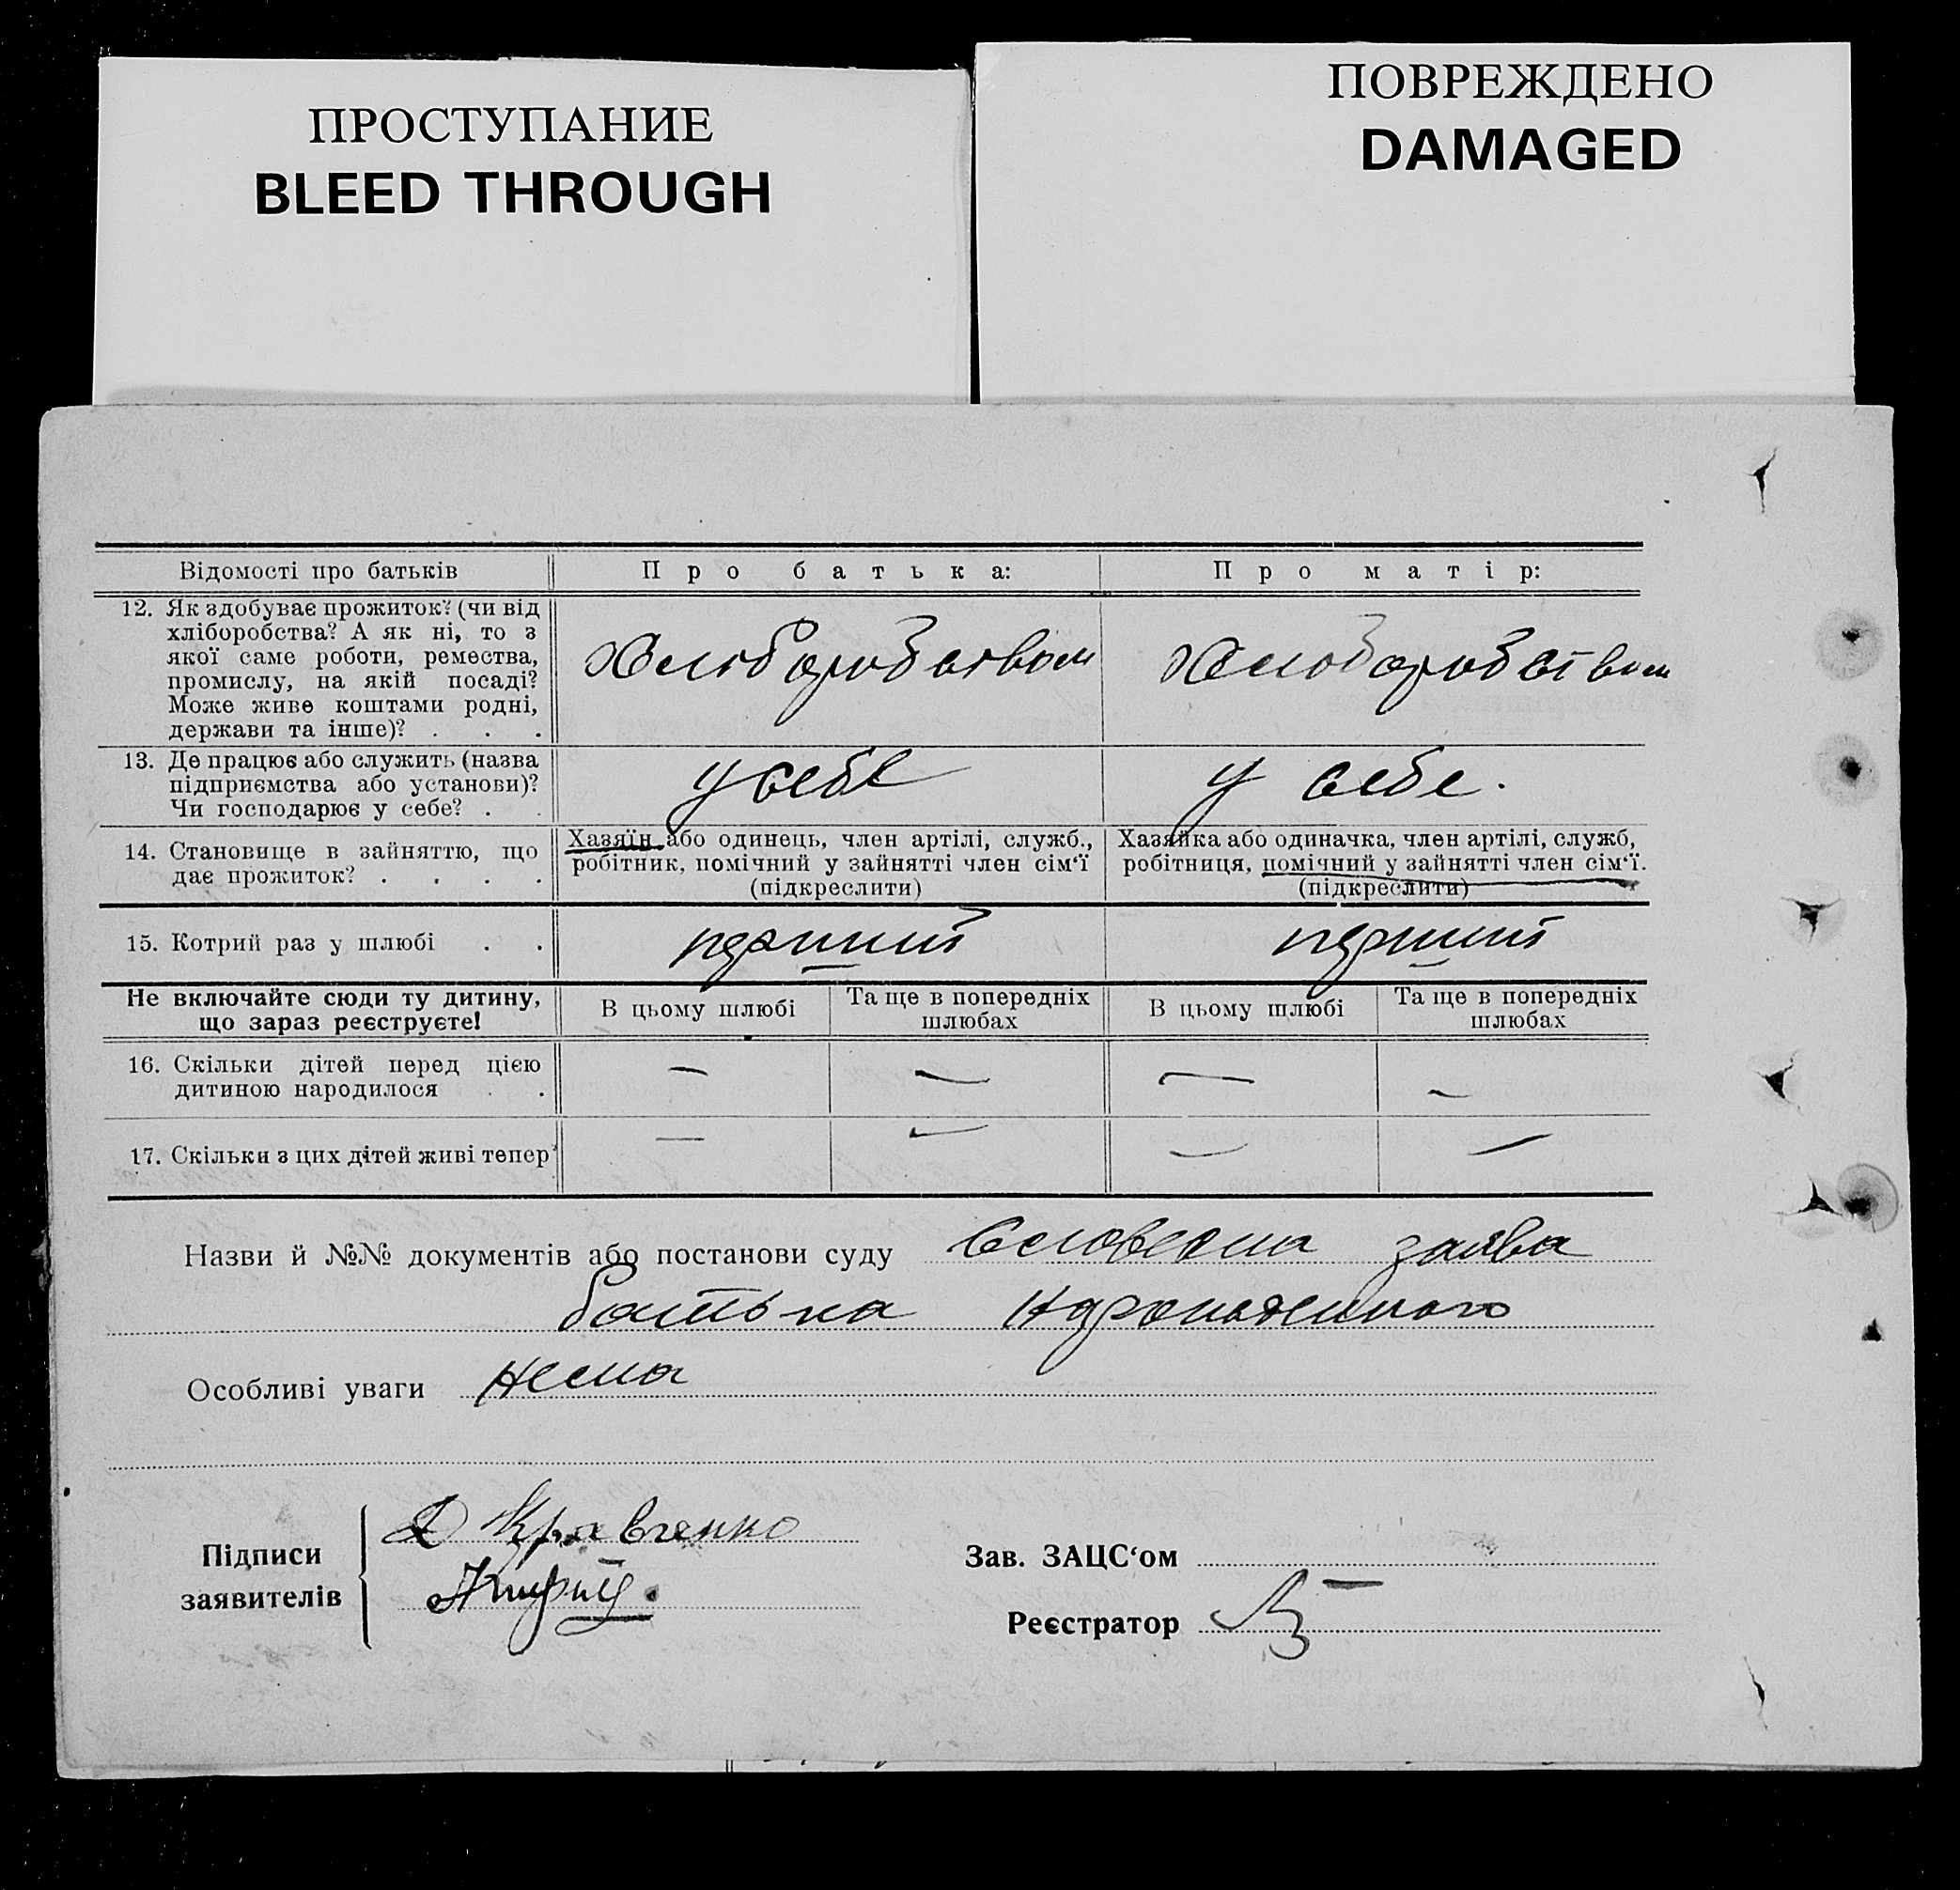 ПРОСТУПАНИЕ
BLEED THROUGH
ПОВРЕЖДЕНО
DAMAGED
Відомості про батьків
Про батька:
Про матір:
12. Як здобуває прожиток? (чи від
хліборобства? А як ні, то з
якої саме роботи, ремества,
промислу, на якій посаді?
Може живе коштами родні,
держави та інше)? . . .
Хлиборобством
Хлиборобством
13. Де працює або служить (назва
підприємства або установи)?
Чи господарює у себе? . .
у себе
у себе.
14. Становище в зайняттю, що
дає прожиток? . . . .
Хазяїн або одинець, член артілі, служб.,
робітник, помічний у зайнятті член сім‘ї
(підкреслити)
Хазяйка або одиначка, член артілі, служб,
робітниця, помічний у зайнятті член сім‘ї.
(підкреслити)
15. Котрий раз у шлюбі . .
перший
перший
Не включайте сюди ту дитину,
що зараз реєструєте!
В цьому шлюбі
Та ще в попередніх
шлюбах
В цьому шлюбі
Та ще в попередніх
шлюбах
16. Скільки дітей перед цією
дитиною народилося . .
— — — —
17. Скільки з цих дітей живі тепер?
— — — —
Назви й №№ документів або постанови суду Словесна заява
батька народженного
Особливі уваги нема
Підписи
заявителів
Д Кравченко
Зав. ЗАЦС‘ом
Реєстратор